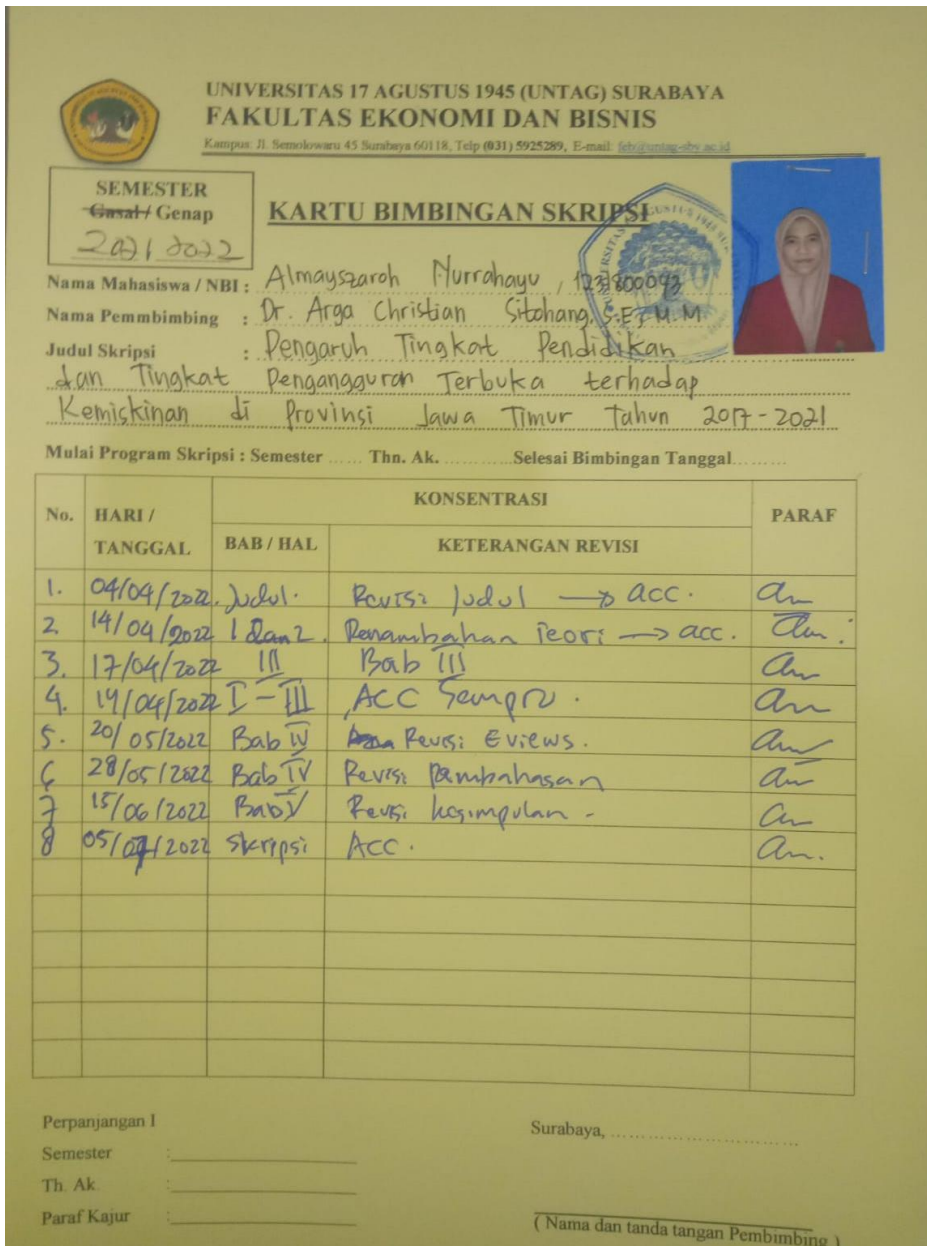 UNIVERSITAS 17 AGUSTUS 1945 (UNTAG) SURABAYA
FAKULTAS EKONOMI DAN BISNIS
Kampus: Jl. Semolowaru 45 Surabaya 60118, Telp (031) 5925289, E-mail: feb@untag-sby.ac.id
SEMESTER
Gasal / Genap
2021 2022
KARTU BIMBINGAN SKRIPSI
Nama Mahasiswa / NBI : Almayszaroh Nurrahayu, 1231800093
Nama Pemmbimbing : Dr. Arga Christian Sitohang, S.E., M.M
Judul Skripsi : Pengaruh Tingkat Pendidikan
dan Tingkat Pengangguran Terbuka terhadap
Kemiskinan di Provinsi Jawa Timur Tahun 2017-2021
Mulai Program Skripsi : Semester ...... Thn. Ak. ............ Selesai Bimbingan Tanggal..........
No. HARI / TANGGAL KONSENTRASI PARAF
BAB / HAL KETERANGAN REVISI
1. 04/04/2022 Judul. Revisi Judul → acc.
2. 14/04/2022 1 dan 2. Penambahan Teori → acc.
3. 17/04/2022 III Bab III
4. 19/04/2022 I - III ACC Sempro.
5. 20/05/2022 Bab IV Revisi Eviews.
6 28/05/2022 Bab IV Revisi Pembahasan
7 15/06/2022 Bab V Revisi kesimpulan -
8 05/07/2022 Skripsi ACC.
Perpanjangan I
Surabaya, ..............................
Semester :
Th. Ak. :
Paraf Kajur :
( Nama dan tanda tangan Pembimbing )